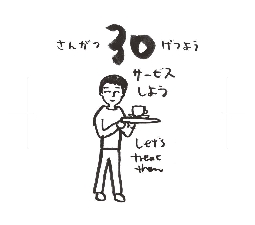 さんがつ 30 げつよう
サービス
しよう
Let's
treat
them